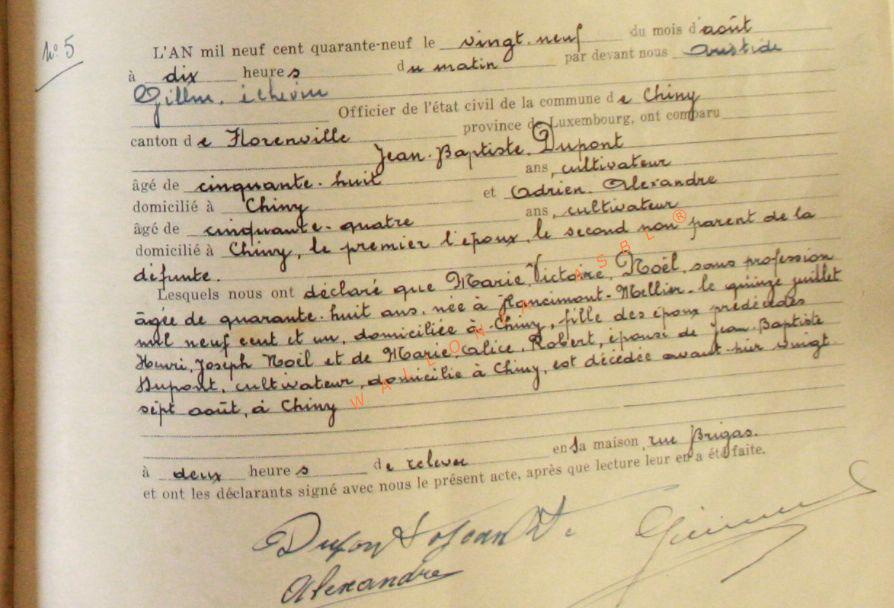 N° 5
L'AN mil neuf cent quarante-neuf le vingt-neuf du mois d'août
à dix heures du matin par devant nous Aristide
échevin
Officier de l'état civil de la commune de Chiny
canton de Florenville province de Luxembourg, ont comparu
Jean-Baptiste Dupont
âgé de cinquante-huit ans, cultivateur
domicilié à Chiny et Adrien Alexandre
âgé de cinquante-quatre ans, cultivateur
domicilié à Chiny, le premier l'époux, le second non parent de la
défunte.
Lesquels nous ont déclaré que Marie, Victoire, Noël, sans profession
âgée de quarante-huit ans, née à Mellier le quinze juillet
mil neuf cent et un, domiciliée à Chiny, fille des époux prédécédés
Henri, Joseph Noël et de Marie, Alice, Robert, épouse de Jean-Baptiste
Dupont, cultivateur, domicilié à Chiny, est décédée avant-hier vingt
sept août, à Chiny
à deux heures de relevée en sa maison, rue Brigas.
et ont les déclarants signé avec nous le présent acte, après que lecture leur en a été faite.
Dupont Jean Bt.
Alexandre
WALLONIA ASBL ®